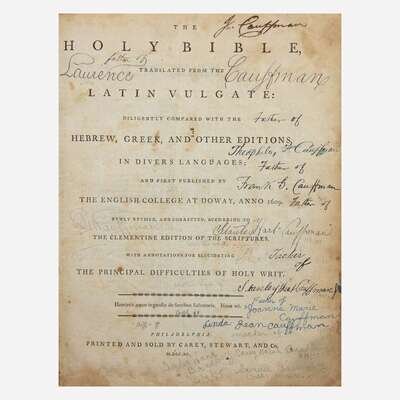 THE
J. Cauffman
HOLY BIBLE,
father of
Laurence
TRANSLATED FROM THE
Cauffman
LATIN VULGATE:
DILIGENTLY COMPARED WITH THE
father of
HEBREW, GREEK, AND OTHER EDITIONS,
Theophilus
Cauffman
IN DIVERS LANGUAGES;
Father of
AND FIRST PUBLISHED BY
Frank G. Cauffman
THE ENGLISH COLLEGE AT DOWAY, ANNO 1609.
Father of
NEWLY REVISED, AND CORRECTED, ACCORDING TO
Stanley Hart Cauffman
THE CLEMENTINE EDITION OF THE SCRIPTURES.
Father
of
WITH ANNOTATIONS FOR ELUCIDATING
THE PRINCIPAL DIFFICULTIES OF HOLY WRIT.
Stanley Hart Cauffman Jr
Haurietis aquas in gaudio de fontibus Salvatoris. Isaiae xii.
Father of
Joanne Marie
Cauffman
Linda Jean Cauffman
PHILADELPHIA:
PRINTED AND SOLD BY CAREY, STEWART, AND Co.
M.DCC.XC.